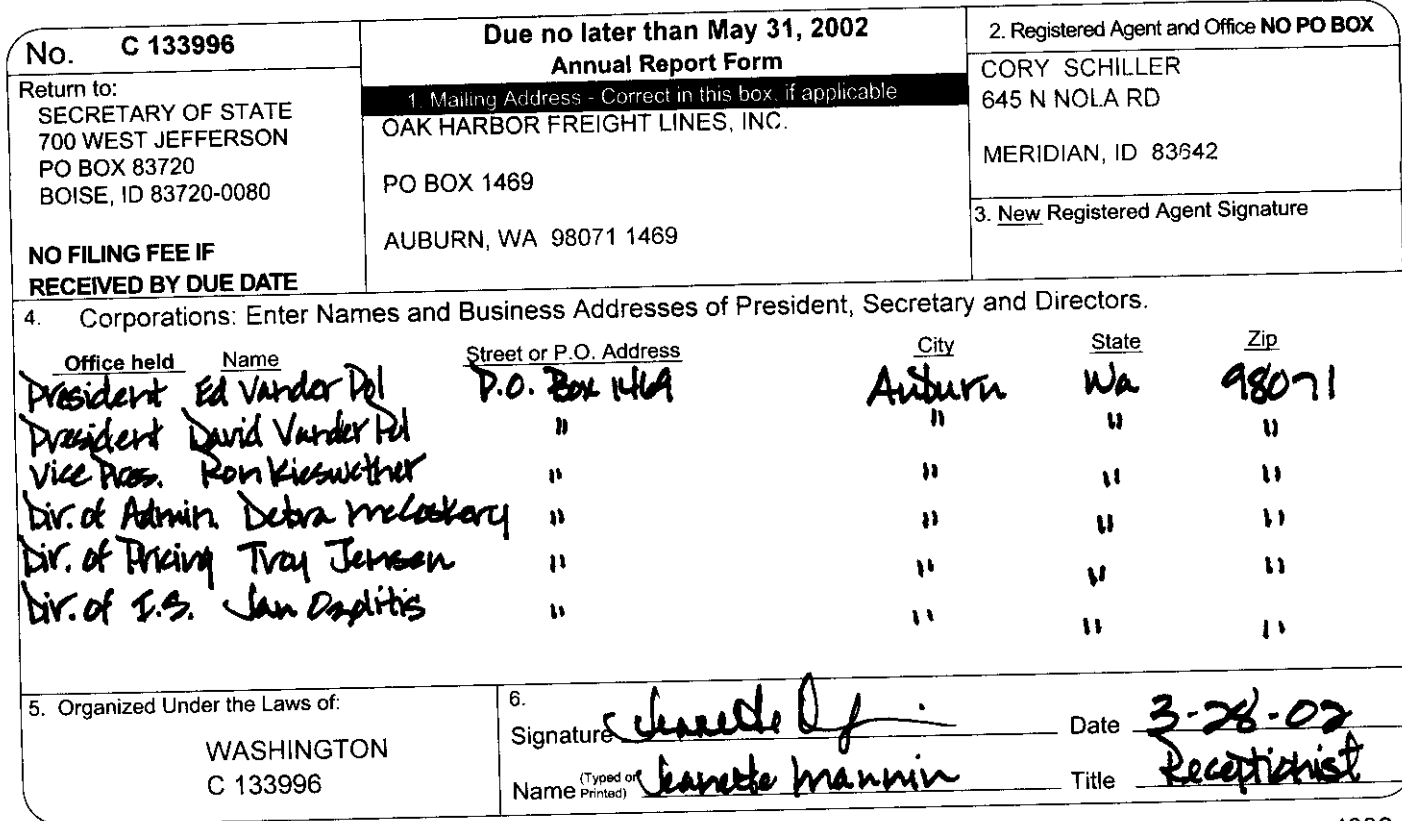 No. C 133996
Return to:
SECRETARY OF STATE
700 WEST JEFFERSON
PO BOX 83720
BOISE, ID 83720-0080
NO FILING FEE IF
RECEIVED BY DUE DATE
Due no later than May 31, 2002
Annual Report Form
1. Mailing Address - Correct in this box, if applicable
OAK HARBOR FREIGHT LINES, INC.
PO BOX 1469
AUBURN, WA 98071 1469
2. Registered Agent and Office NO PO BOX
CORY SCHILLER
645 N NOLA RD
MERIDIAN, ID 83642
3. New Registered Agent Signature
4. Corporations: Enter Names and Business Addresses of President, Secretary and Directors.
Office held Name Street or P.O. Address City State Zip
President Ed Vander Pol P.O. Box 1469 Auburn Wa 98071
President David Vander Pol " " " "
Vice Pres. Ron Kieswether " " " "
Dir. of Admin. Debra McCloskery " " " "
Dir. of Pricing Troy Jensen " " " "
Dir. of I.S. Jan " " " "
5. Organized Under the Laws of:
WASHINGTON
C 133996
6.
Signature Jeanette Date 3-28-02
Name (Typed or Printed) Jeanette Mannin Title Receptionist